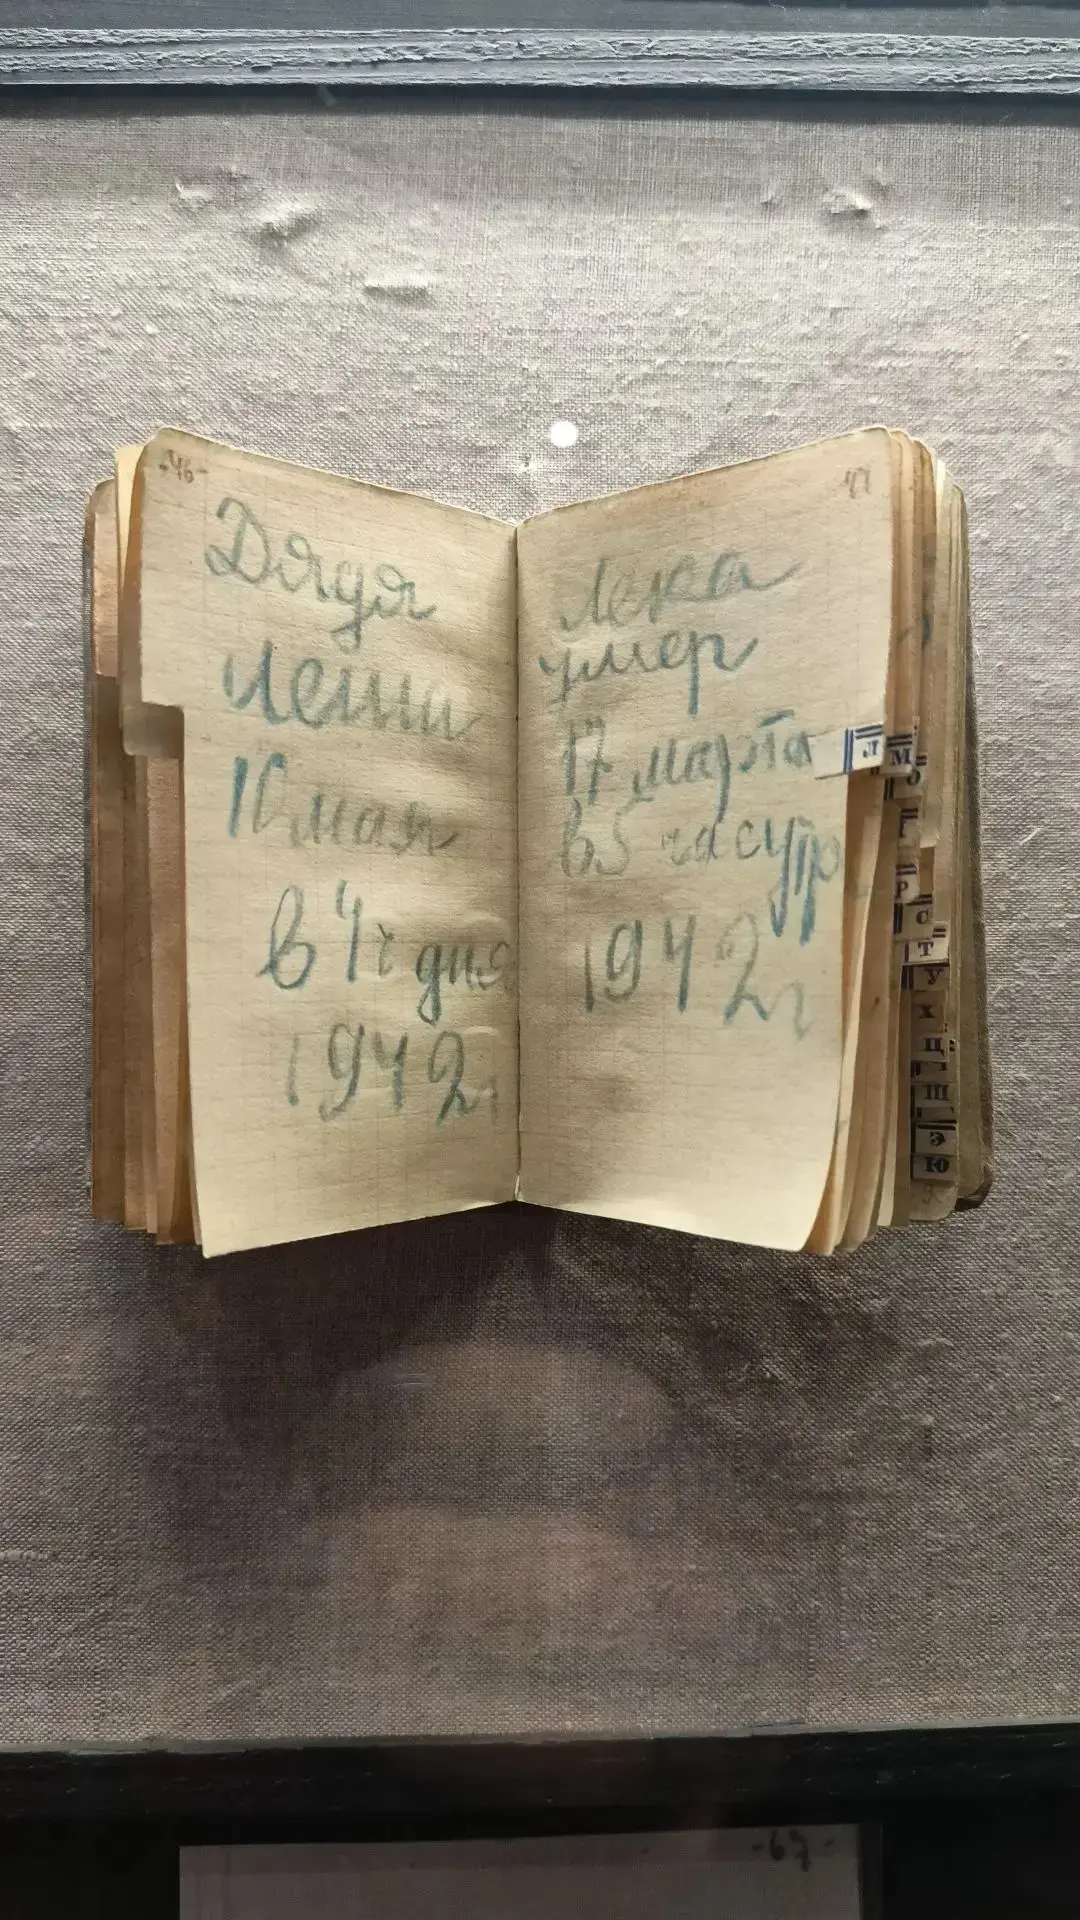 -46-
Дядя
Леша
10 мая
в 4 ч дня
1942 г
47
Лека
умер
17 марта
в 5 час утр
1942 г
Л
М
О
Р
С
Т
У
Х
Ц
Ш
Э
Ю
-67-